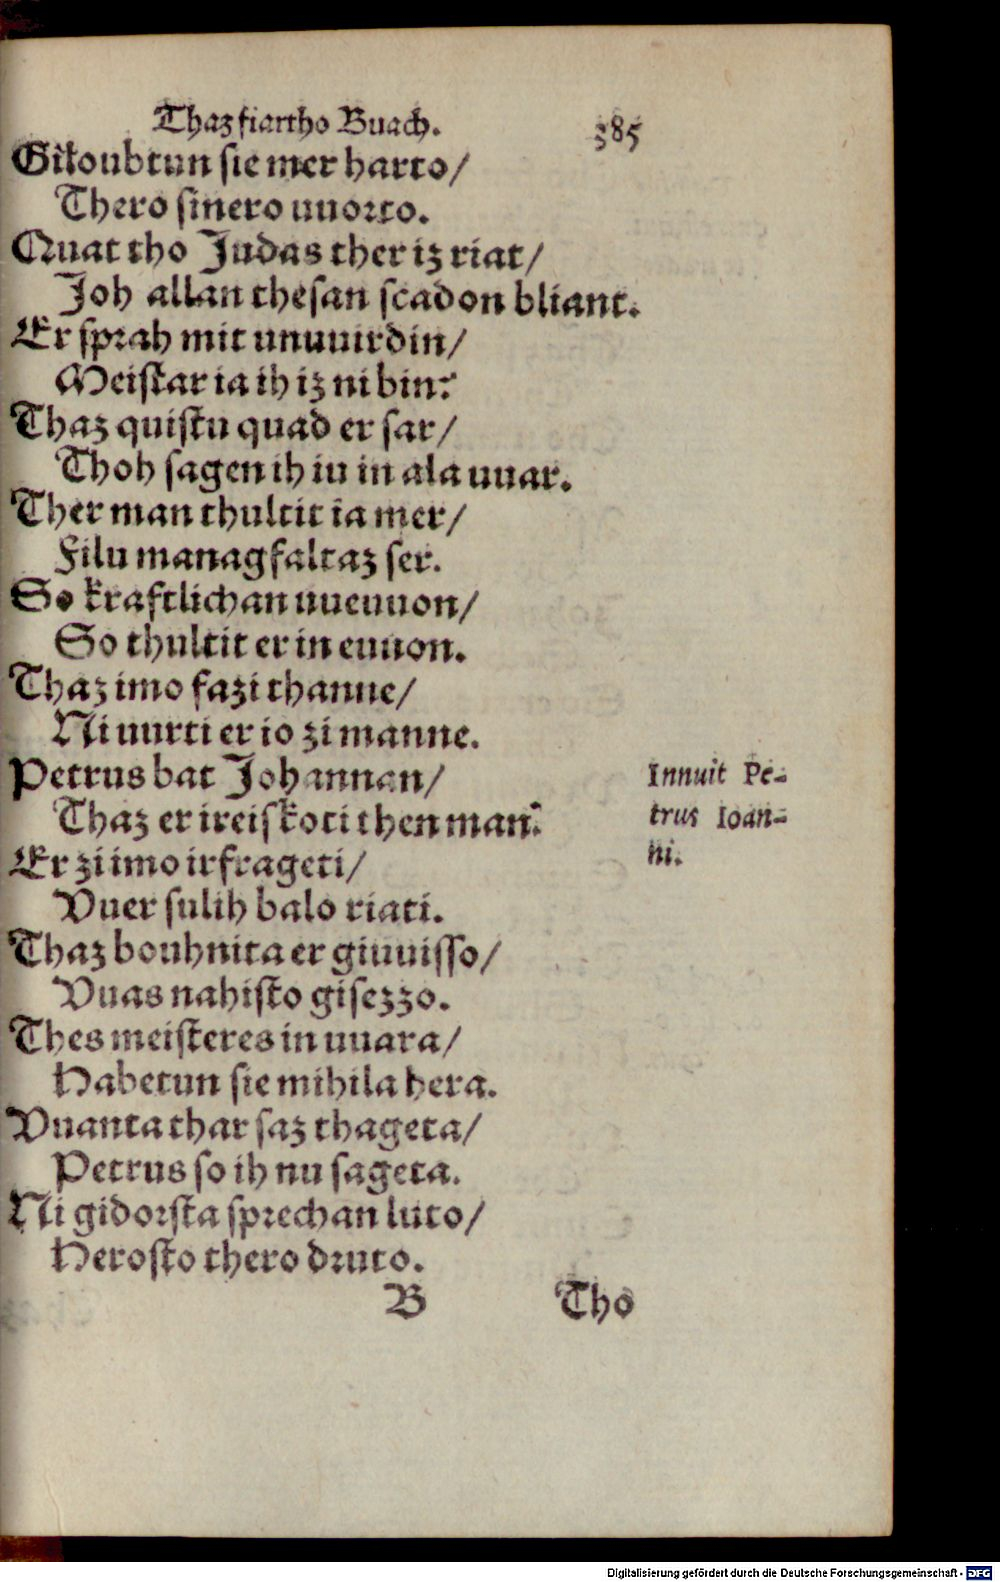 Thaz fiartho Buach. 385
Giloubtun sie mer harto/
Thero sinero uuorto.
Quat tho Judas ther iz riat/
Joh allan thesan scadon bliant.
Er sprah mit unuuirdin/
Meistar ia ih iz ni bin:
Thaz quistu quad er sar/
Thoh sagen ih iu in ala uuar.
Ther man thultit ia mer/
Filu managfaltaz ser.
So kraftlichan uueuuon/
So thultit er in euuon.
Thaz imo fazi thanne/
Ni uurti er io zi manne.
Petrus bat Johannan/
Thaz er ireiskoti then man:
Er zi imo irfrageti/
Vuer sulih balo riati.
Thaz bouhnita er giuuisso/
Vuas nahisto gisezzo.
Thes meisteres in uuara/
Habetun sie mihila hera.
Vuanta thar saz thageta/
Petrus so ih nu sageta.
Ni gidorsta sprechan luto/
Herosto thero druto.
B Tho
Innuit Pe-
trus Ioan-
ni.
Digitalisierung gefördert durch die Deutsche Forschungsgemeinschaft - DFG